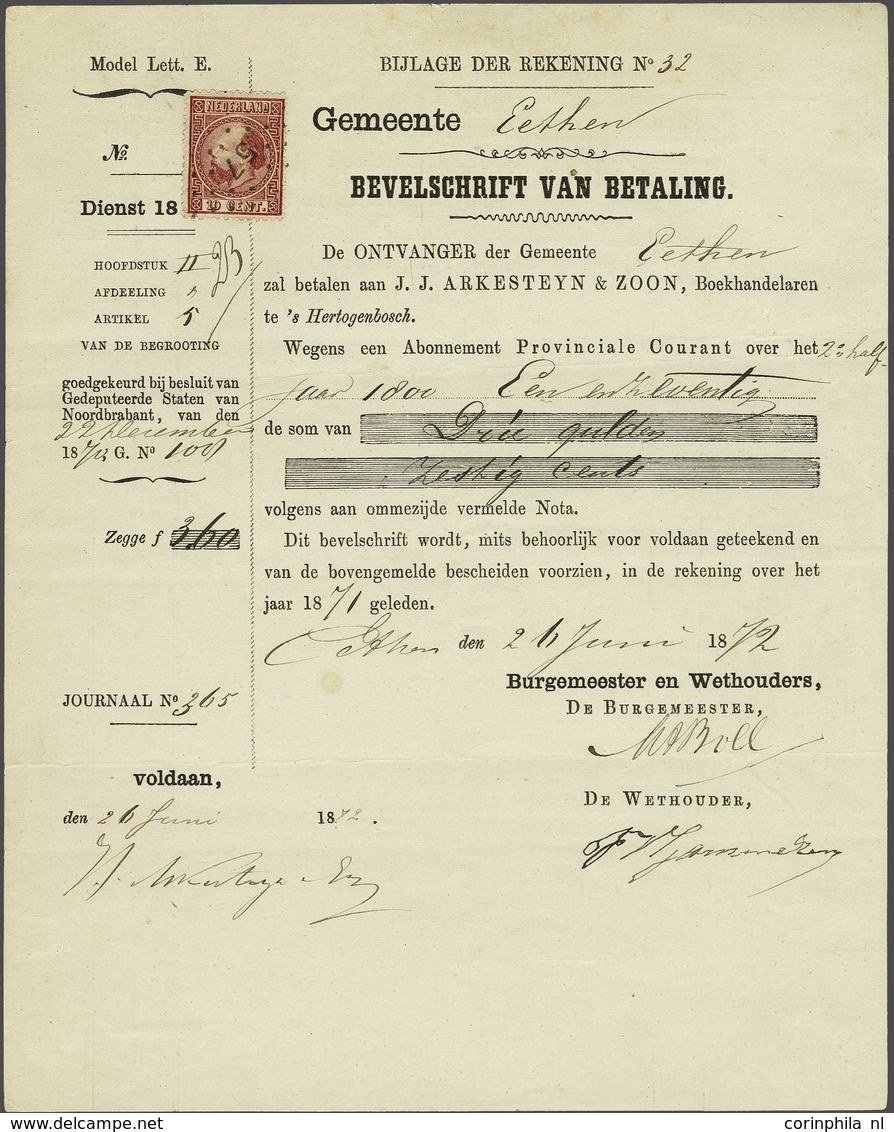 Model Lett. E.
No.
Dienst 18
HOOFDSTUK II
AFDEELING "
ARTIKEL 5
VAN DE BEGROOTING
goedgekeurd bij besluit van
Gedeputeerde Staten van
Noordbrabant, van den
22 December
18 G. No
Zegge f 3,60
JOURNAAL No 365
voldaan,
den 26 Juni 1872.
NEDERLAND
57
10 CENT.
BIJLAGE DER REKENING No 32
Gemeente Eethen
BEVELSCHRIFT VAN BETALING.
De ONTVANGER der Gemeente Eethen
zal betalen aan J. J. ARKESTEYN & ZOON, Boekhandelaren
te 's Hertogenbosch.
Wegens een Abonnement Provinciale Courant over het 2e half
jaar 1800 Een en zeventig
de som van Drie gulden
Zestig cents
volgens aan ommezijde vermelde Nota.
Dit bevelschrift wordt, mits behoorlijk voor voldaan geteekend en
van de bovengemelde bescheiden voorzien, in de rekening over het
jaar 1871 geleden.
Eethen den 26 Juni 1872
Burgemeester en Wethouders,
DE BURGEMEESTER,
DE WETHOUDER,
corinphila nl